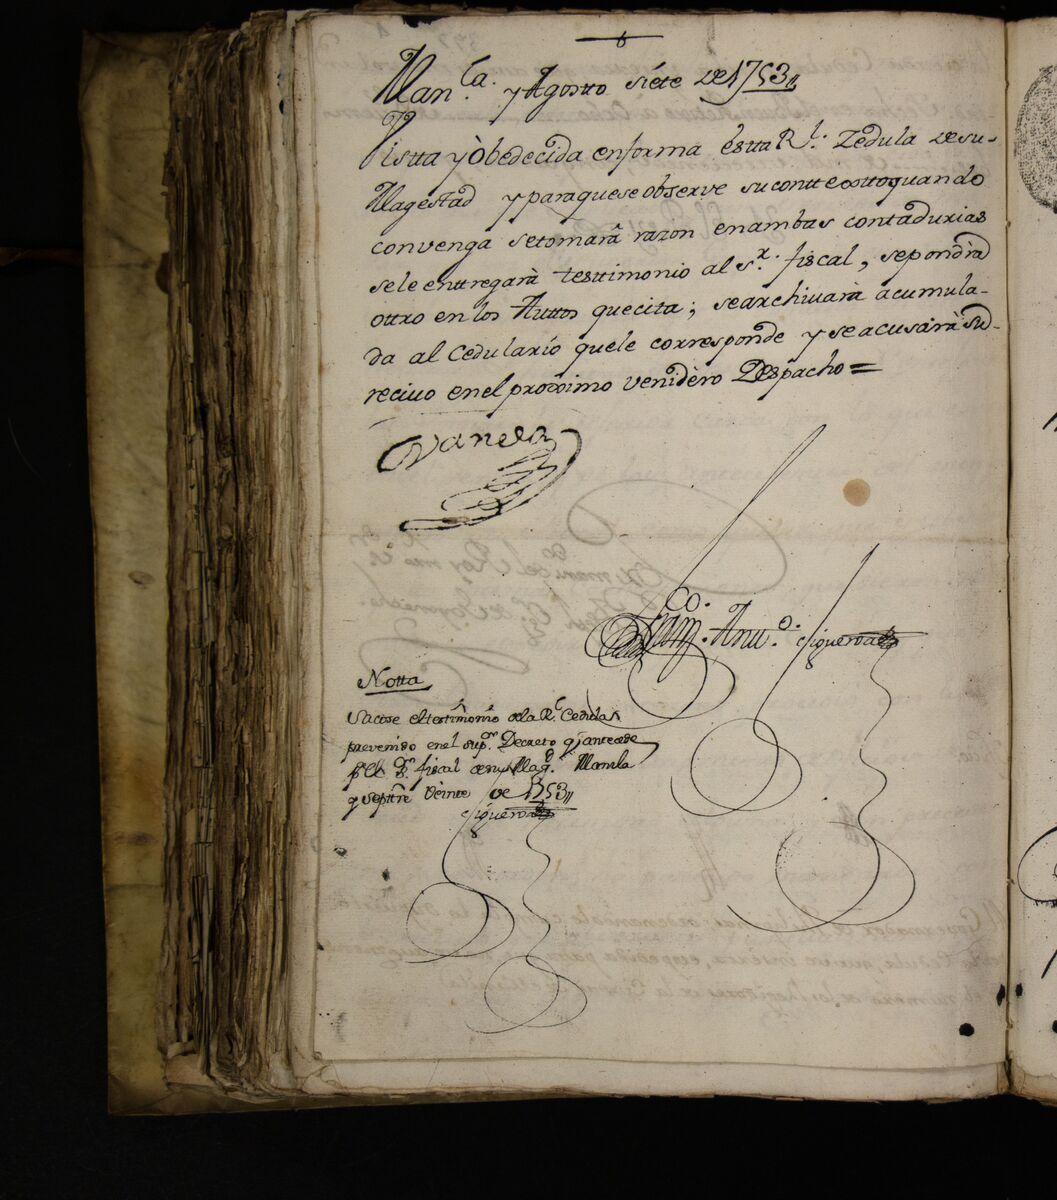 Man.la y Agosto siéte de 1753,,
Vistta y Obedecida en forma ésttta Rl. Zedula de su-
Magestad y para que se observe su contteostto quando
convenga se tomará razon en ambas contadurias
se le enttregará testtimonio al sr. fiscal, se pondrá
ottro en los Auttos que cita; se archivará acumula-
da al Cedulario que le corresponde y se acusará su
recivo en el proximo venidèro Despacho =
Ovando
Notta
Sacose el testimonio de la Rl. Cedula
prevenido en el supor. Decreto q antecede
pa. el Sr. fiscal de su Magd. Manila
y Septtre. veinte de 1753,,
Figueroa